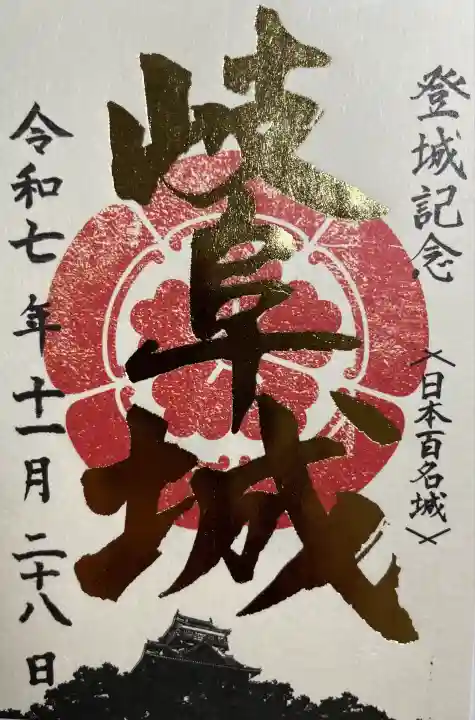 登城記念
〈日本百名城〉
岐阜城
令和七年十一月二十八日